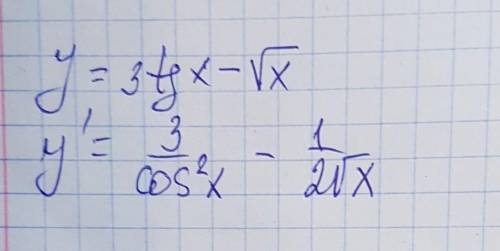 y = 3tgx - √x
y' = 3/cos²x - 1/2√x